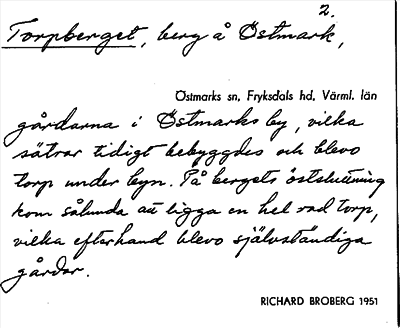 2.
Torpberget, berg å Östmark,
Östmarks sn, Fryksdals hd, Värml. län
gårdarna i Östmarks by, vilka
sätrar tidigt bebyggdes och blevo
torp under byn. På bergets östsluttning
kom sålunda att ligga en hel rad torp,
vilka efterhand blevo självständiga
gårdar.
RICHARD BROBERG 1951